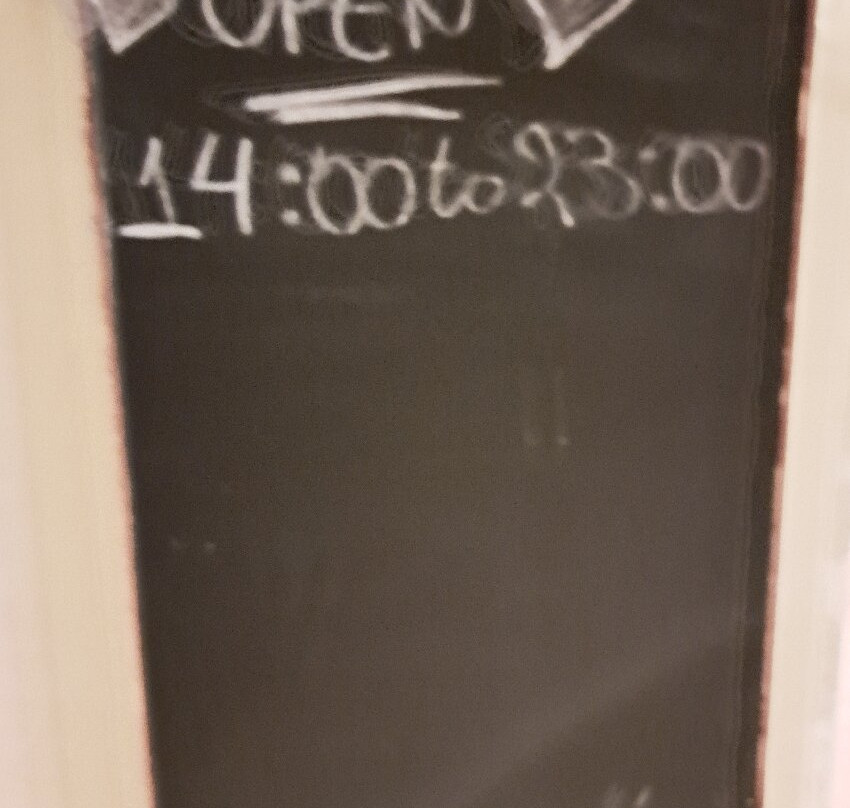 OPEN
14:00 to 23:00